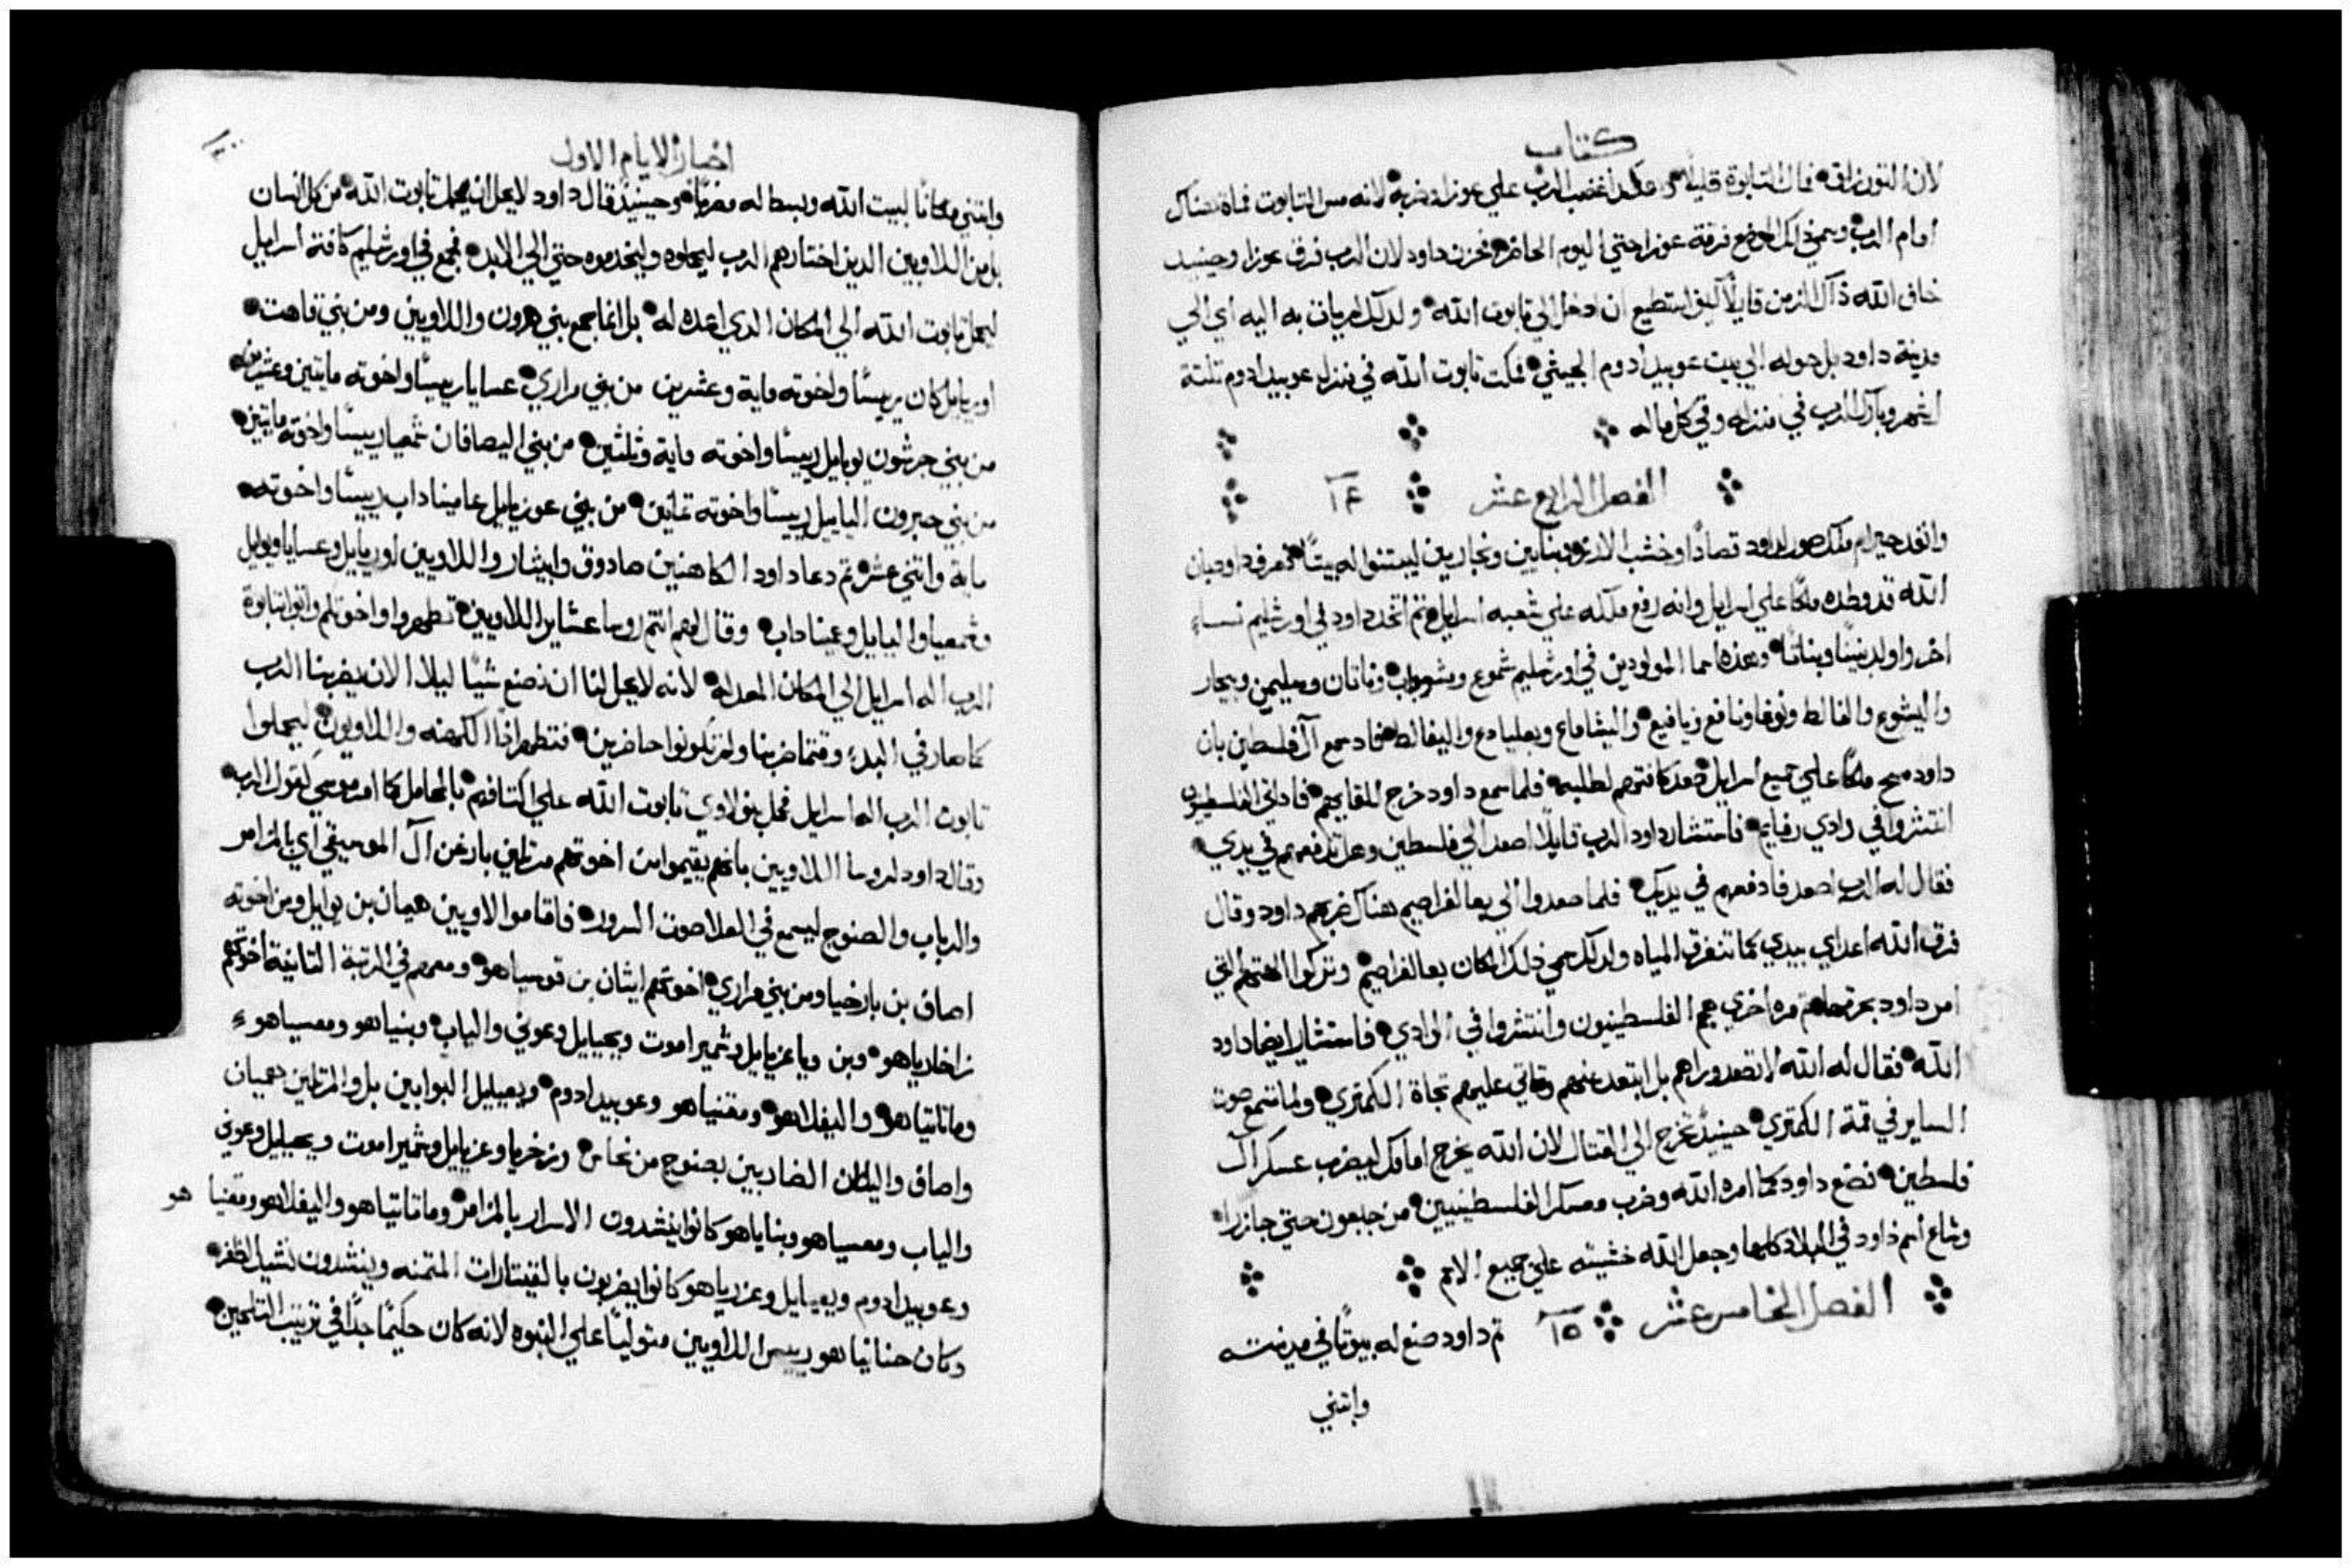 كتاب
لان الثور زلق فمال التابوة قليلًا فغضب الرب علي عوزا وضربه لانه مس التابوت فمات هناك
امام الرب وسمي ذلك الموضع فرقة عوزا حتي اليوم الحاضر فحزن داود لان الرب فرق عوزا وحينيد
خاف الله ذآك الزمن قايلًا كيف استطيع ان ادخل الي تابوت الله ولدلك لم يات به اليه اي الي
مدينة داود بل حوله الي بيت عوبيد ادوم الجيثي فمكت تابوت الله في منزل عوبيد ادوم تلتة
اشهر وبارك الرب في منزله وفي كل ماله
الفصل الرابع عشر ١٤
وانفد حيرام ملك صور لداود قصادًا وخشب الارز وبنايين ونجارين ليبتنوا له بيتًا فعرف داود بان
الله قد وطده ملكًا علي اسرايل وانه رفع ملكه علي شعبه اسرايل ثم اتخد داود في اورشليم نساء
اخر واولد بنينًا وبناتًا وهده اسما المولودين في اورشليم شموع وشوباب وناتان وسليمن ويبحار
واليشوع والفالط ونوغا ونافع ويافيع واليشاماع وبعليادع واليفالط فاد سمع آل فلسطين بان
داود مسح ملكًا علي جميع اسرايل صعد كافتهم لطلبه فلما سمع داود خرج للقايهم فاد اتي الفلسطينيون
انتشروا في وادي رفايم فاستشار داود الرب قايلًا اصعد الي فلسطين وهل تدفعهم في يدي
فقال له الرب اصعد فادفعهم في يديك فلما صعدوا الي بعالفراصيم هناك ضربهم داود وقال
فرق الله اعداي بيدي كما تنفرق المياه ولدلك سمي ذلك المكان بعالفراصيم وتركوا الهتهم التي
امر داود بحرقها ثم مره اخري هجم الفلسطينيون وانتشروا في الوادي فاستشار ايضا داود
الله فقال له الله لا تصعد وراهم بل ابتعد عنهم وتاتي عليهم تجاة الكمتري ولما تسمع صوت
الساير في قمة الكمتري حينيدٍ تخرج الي القتال لان الله يخرج امامك ليضرب عسكر آل
فلسطين فصنع داود كما امره الله وضرب معسكر الفلسطينيين من جبعون حتي جازرا
وشاع اسم داود في البلاد كلها وجعل الله خشيته علي جميع الامم
الفصل الخامس عشر ١٥ ثم داود صنع له بيوتًا في مدينته
وابتني
اخبار الايام الاول
وابتني مكانًا لبيت الله وبسط له مضربًا وحينيدٍ قال داود لا يحل ان يحمل تابوت الله من كل انسان
بل من اللاويين الدين اختارهم الرب ليحملوه وليخدموه حتي الي الابد فجمع في اورشليم كافة اسرايل
ليحمل تابوت الله الي المكان الدي اعده له بل انما جمع بني هرون واللاويين ومن بني قاهت
اوريايل كان رييسًا واخوته ماية وعشرين من بني مراري عسايا رييسًا واخوته مايتين وعشرين
من بني جرشون يوبايل رييسًا واخوته ماية وثلثين من بني اليصافان شمعيا رييسًا واخوته مايتين
من بني حبرون اليايل رييسًا واخوته ثمانين من بني عوزيايل عاميناداب رييسًا واخوته
ماية واتني عشر ثم دعا داود الكاهنين صادوق وابيثار واللاويين اوريايل وعسايا ويوايل
وشمعيا واليايل وعميناداب وقال لهم انتم روسا عشاير اللاويين تطهروا واخوتكم واتوا بتابوة
الرب اله اسرايل الي المكان المعد له لانه لا يحل لنا ان نصنع شيًا ليلا الان يضربنا الرب
كما صار في البدء وقتما ضربنا ولم تكونوا حاضرين فتطهر اذًا الكهنه واللاويون ليحملوا
تابوت الرب اله اسرايل فحمل بنو لاوي تابوت الله علي اكتافهم بالمحامل كما امر موسي كقول الرب
وقال داود لروسا اللاويين بانهم يقيموا من اخوتهم مرتلين بارغن آل الموسيقي اي بالمزامر
والرباب والصنوج ليسمع في العلا صوت السرور فاقاموا لاويين هيمان بن يوايل ومن اخوته
اصاف بن بارخيا ومن بني مراري اخوتهم ايثان بن قوسياهو ومعهم في الرتبة التانية اخوتهم
زاخارياهو وبن وياعزيايل وشميراموت ويحيايل وعوني والياب وبنياهو ومعسياهو
وماتاتياهو واليفلاهو ومقنياهو وعوبيد ادوم ويعييليل البوابين بل والمرتلين هيمان
واصاف وايثان الضاربين بصنوج من نحاس وزخريا وعزيايل وشميراموت ويحييليل وعوني
والياب ومعسياهو وبناياهو كانوا ينشدون الاسرار بالمزامر وماتاتياهو واليفلاهو ومقنيا هو
وعوبيد ادوم ويعيايل وعزرياهو كانوا يضربون بالقيتارات المتمنه وينشدون نشيد الظفر
وكان حنانيا هو رييس اللاويين متوليًا علي النبوه لانه كان حكيمًا جدًا في ترتيب التلحين